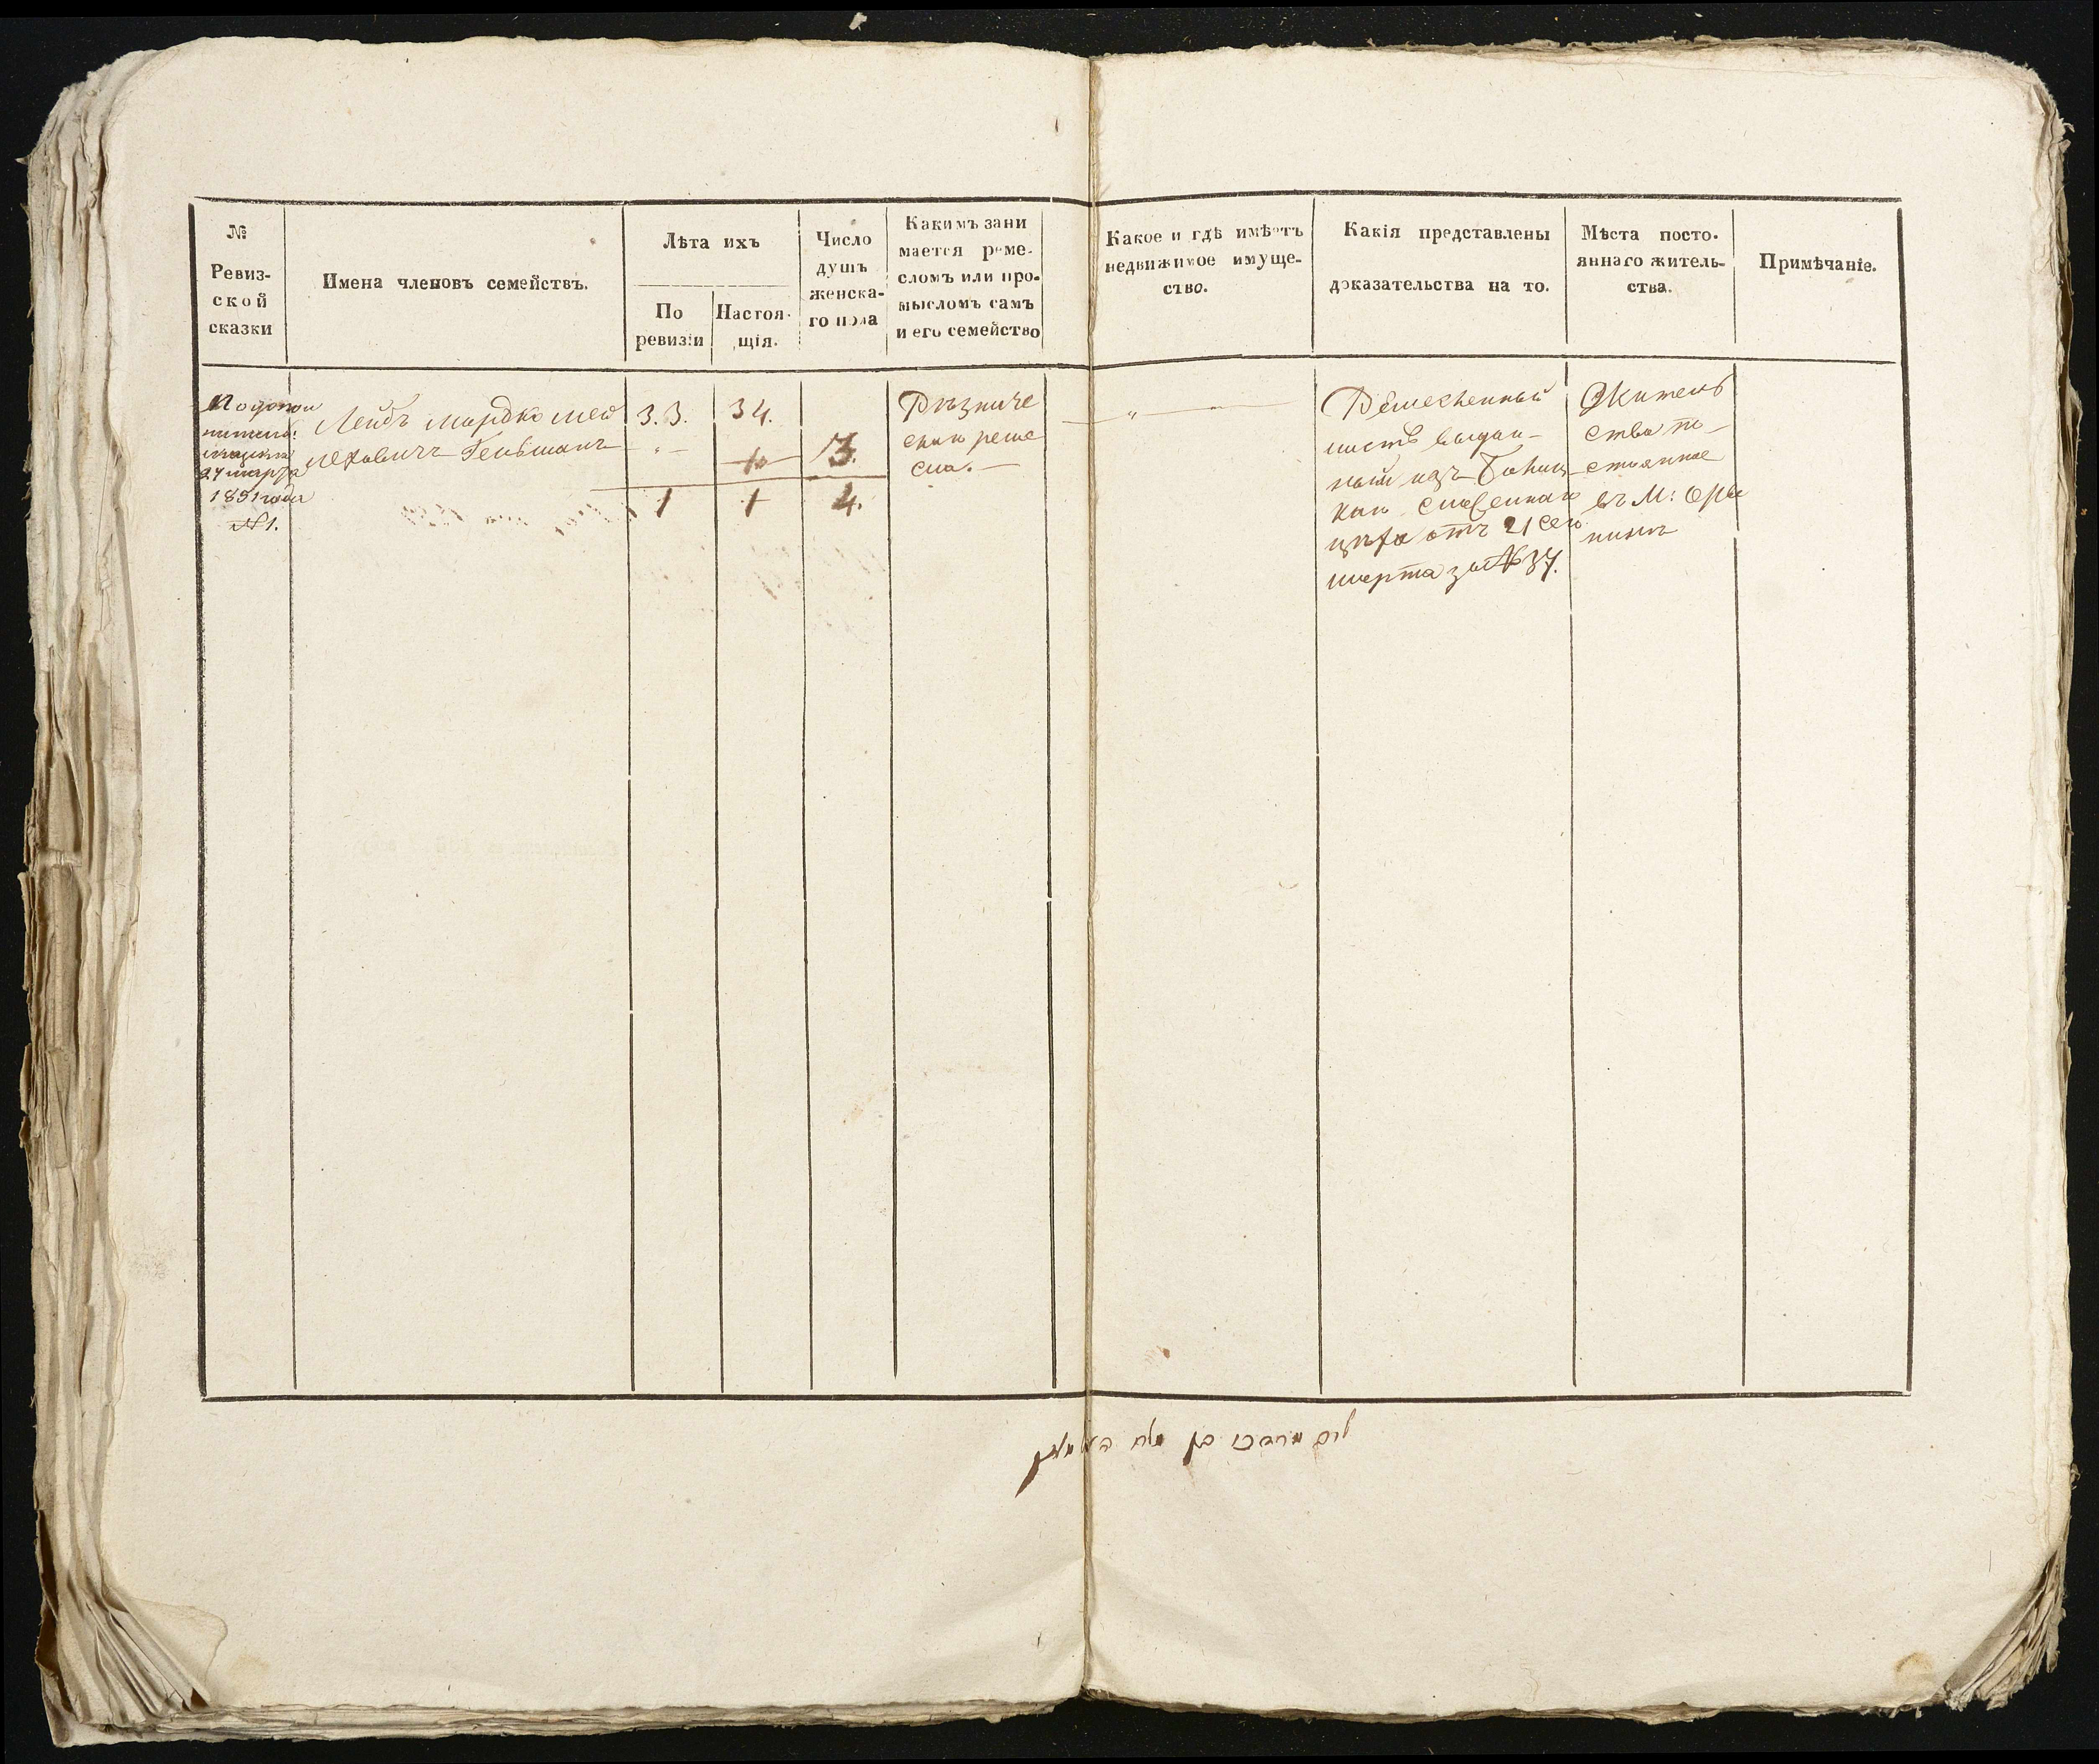 №
Ревиз-
ской
сказки
Имена членовъ семействъ.
Лѣта ихъ
По
ревизіи
Настоя-
щія.
Число
душъ
женска-
го пола
Какимъ зани
мается реме-
сломъ или про-
мысломъ самъ
и его семейство
Какое и гдѣ имѣетъ
недвижимое имуще-
ство.
Какія представлены
доказательства на то.
Мѣста посто-
яннаго житель-
ства.
Примѣчаніе.
По допол
нительн:
27 марта
1851 года
№ 1.
Лейбъ Мордко Мей
еровичъ Гельманъ
3.3.
34.
3.
1
1
4.
Рѣзниче
ским реме
сла.
"
Ремесленный
листъ выдан-
ный изъ
цеха отъ 21 сего
марта за № 34.
Житель
ство по-
стоянное
въ М: